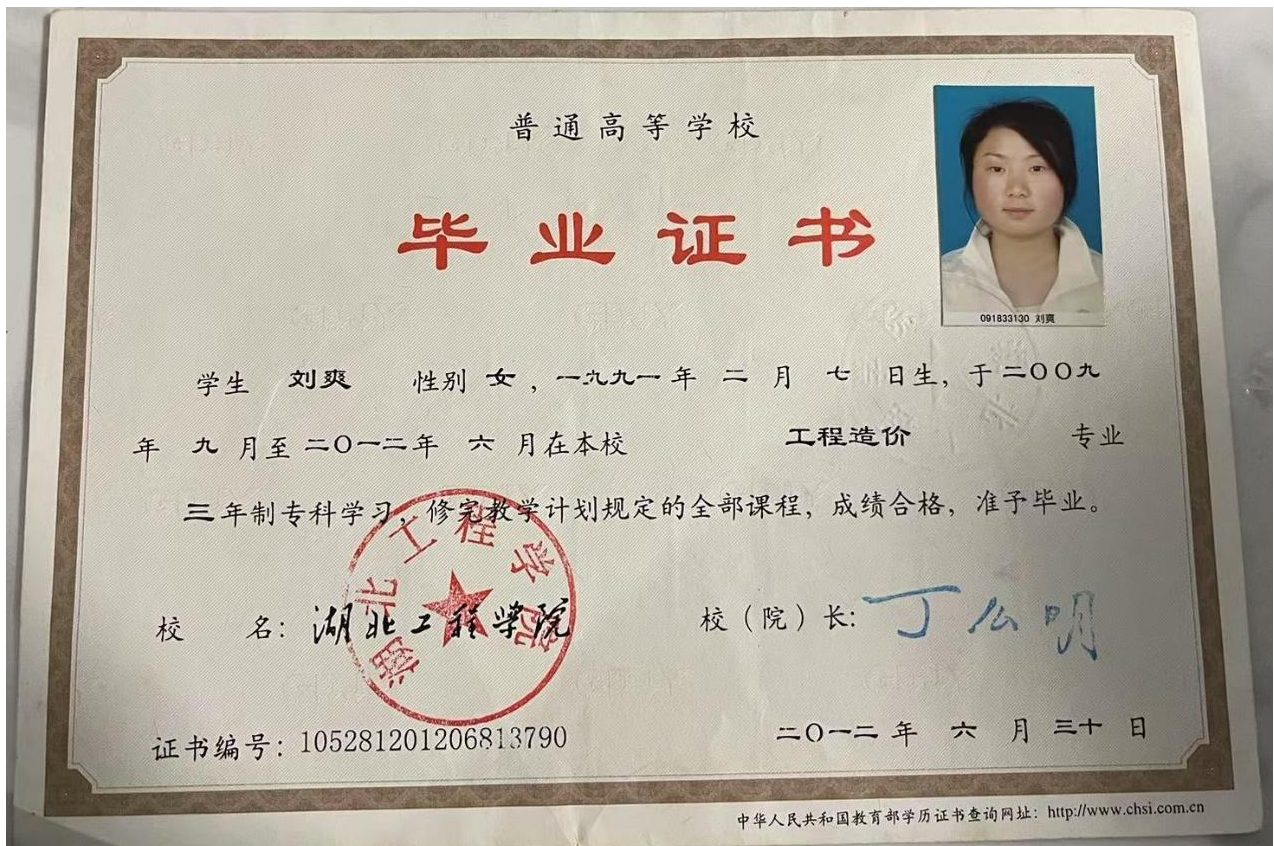 普通高等学校
毕业证书
091833130 刘爽
学生 刘爽 性别 女，一九九一年 二 月 七 日生，于二〇〇九
年 九 月至二〇一二年 六 月在本校 工程造价 专业
三年制专科学习，修完教学计划规定的全部课程，成绩合格，准予毕业。
湖北工程学院
校 名：湖北工程学院 校（院）长：丁么明
证书编号：105281201206813790 二〇一二年 六 月 三十 日
中华人民共和国教育部学历证书查询网址：http://www.chsi.com.cn